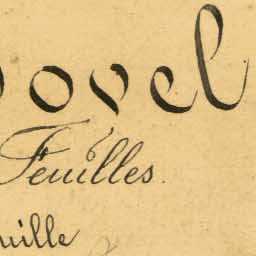 ovel
Feuilles.
uille